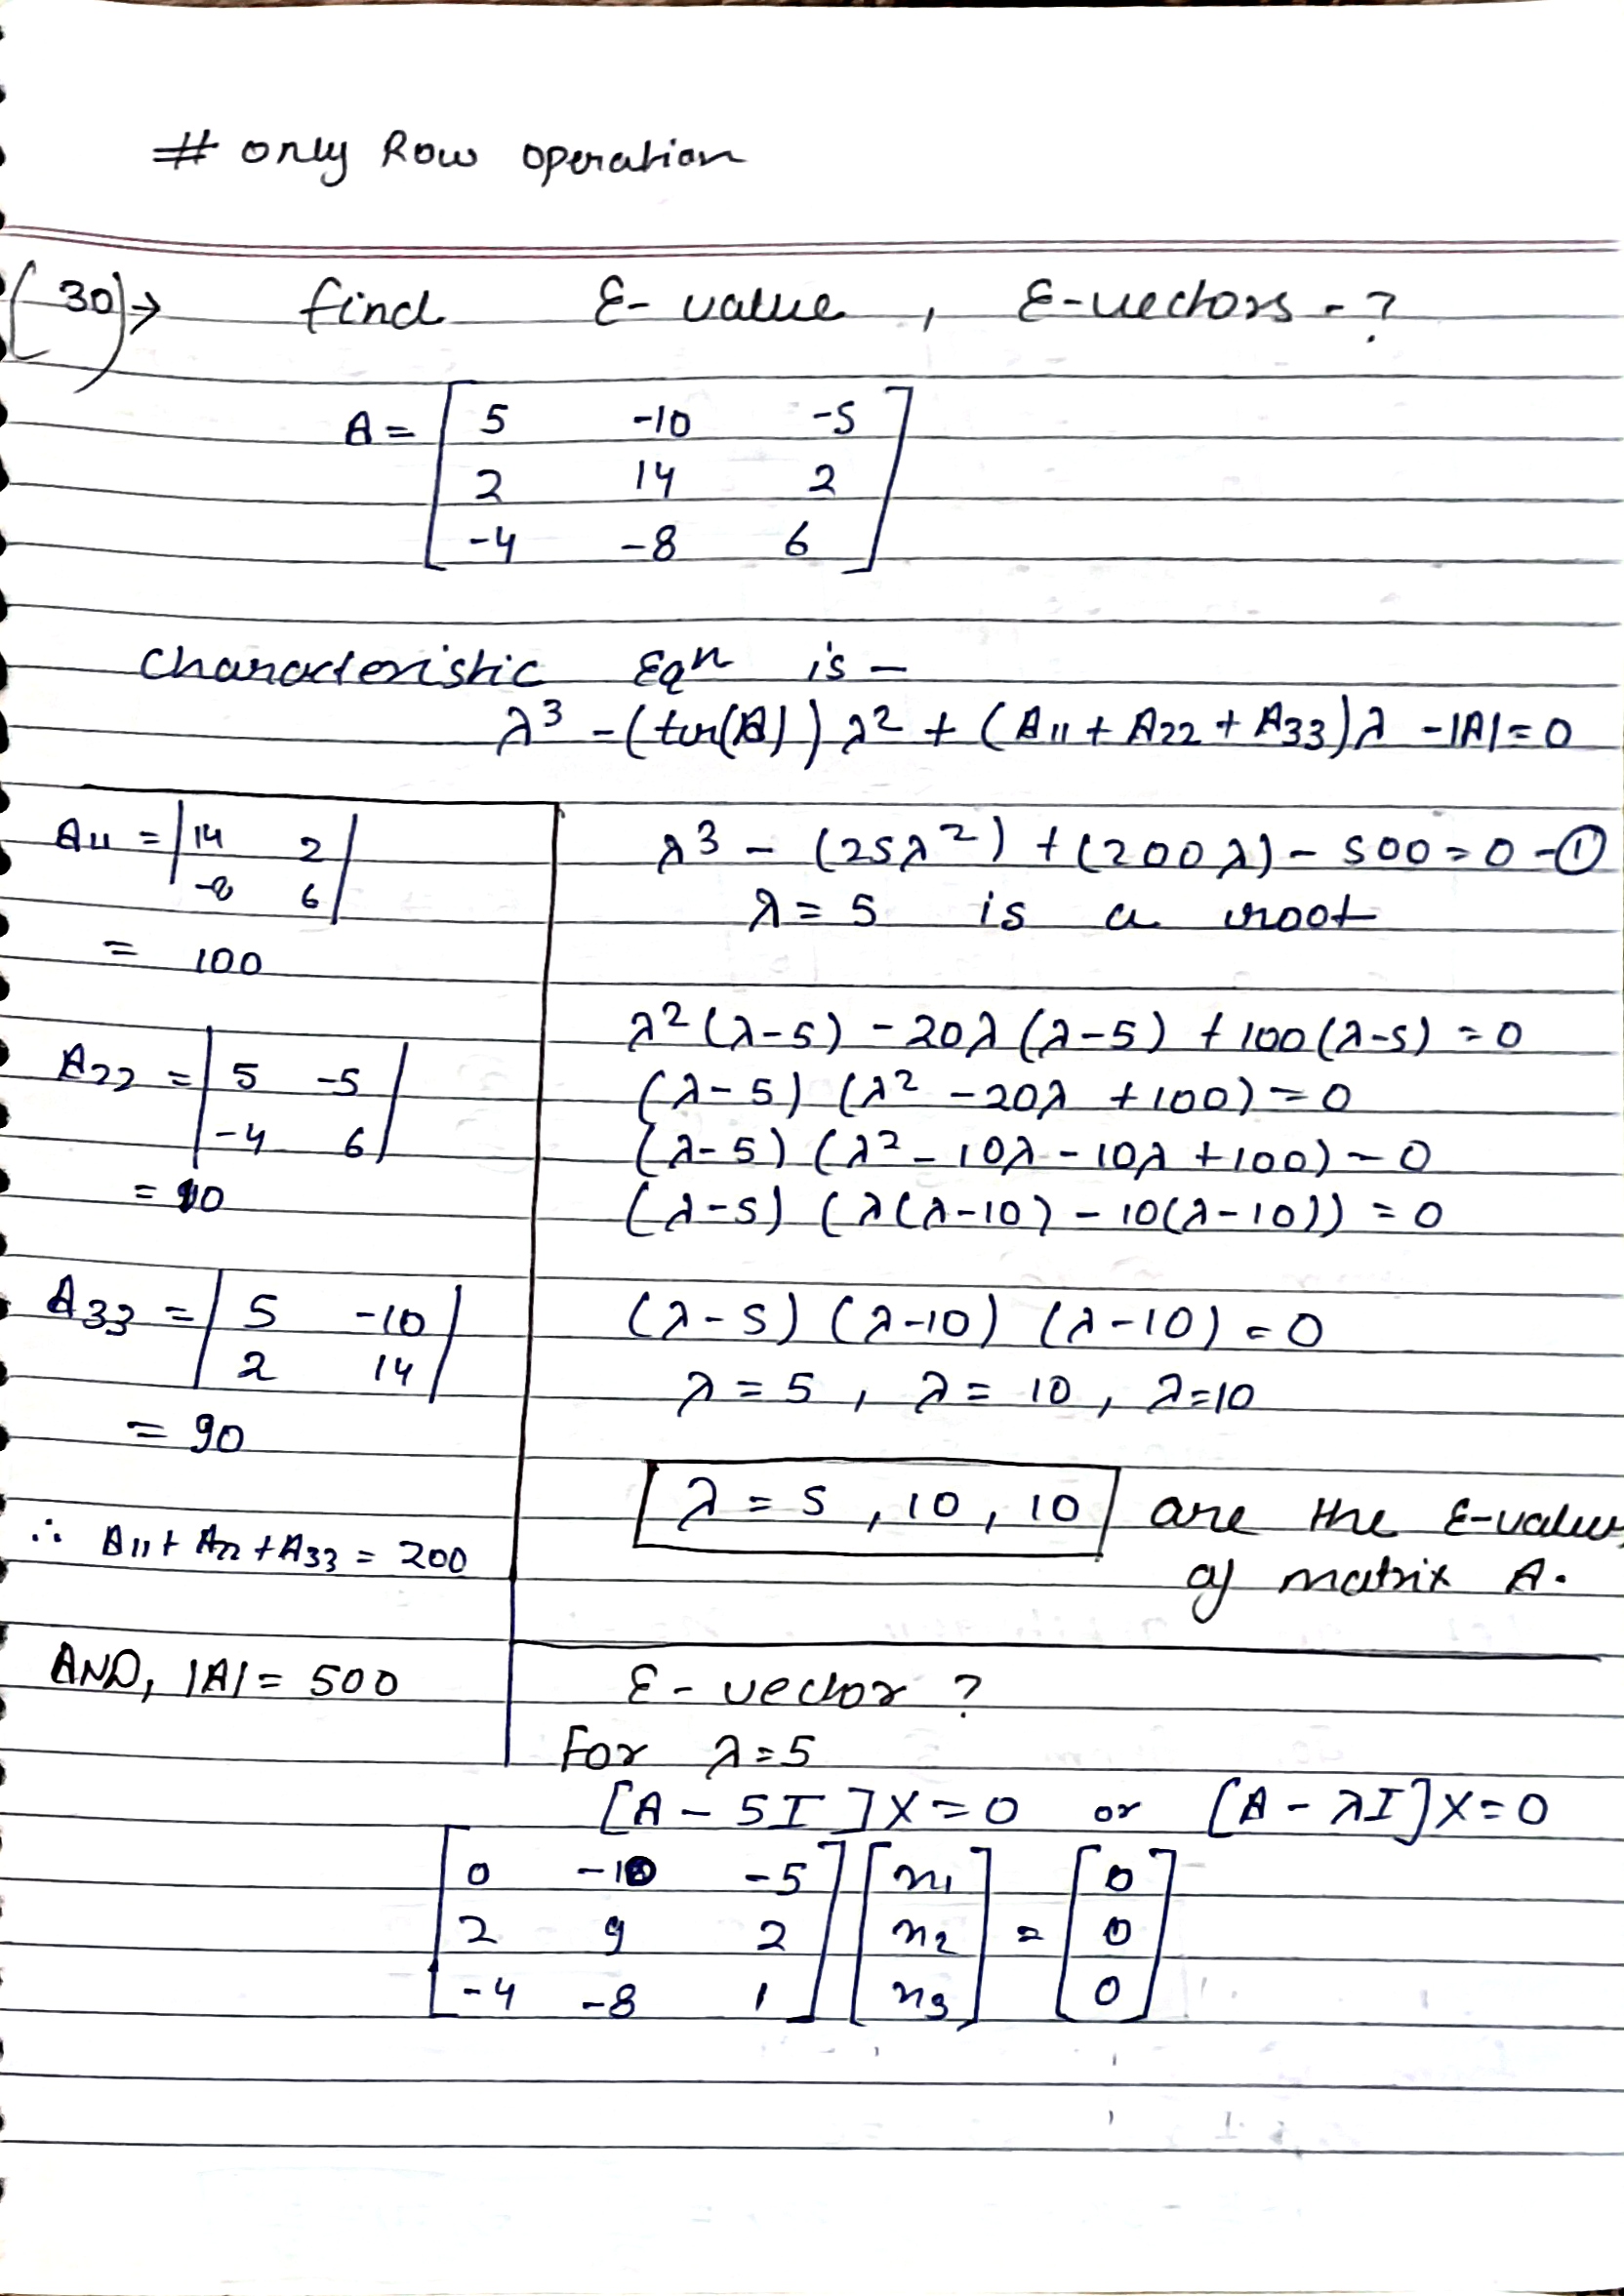 # only Row operation
(30)→ find E-value , E-vectors - ?
A = [ 5 -10 -5
2 14 2
-4 -8 6 ]
characteristic Eqn is -
λ³ - (tr(A)) λ² + (A11 + A22 + A33) λ - |A| = 0
A11 = | 14 2
-8 6 |
= 100
A22 = | 5 -5
-4 6 |
= 10
A33 = | 5 -10
2 14 |
= 90
∴ A11 + A22 + A33 = 200
AND, |A| = 500
λ³ - (25λ²) + (200λ) - 500 = 0 - ①
λ = 5 is a root
λ²(λ-5) - 20λ(λ-5) + 100(λ-5) = 0
(λ-5) (λ² - 20λ + 100) = 0
(λ-5) (λ² - 10λ - 10λ + 100) - 0
(λ-5) (λ(λ-10) - 10(λ-10)) = 0
(λ-5) (λ-10) (λ-10) = 0
λ = 5 , λ = 10 , λ=10
λ = 5 , 10 , 10 are the E-values
of matrix A.
E-vector ?
For λ=5
[A - 5I] X = 0 or [A - λI] X = 0
[ 0 -10 -5 ] [ x1 ] = [ 0 ]
2 9 2 x2 0
-4 -8 1 x3 0